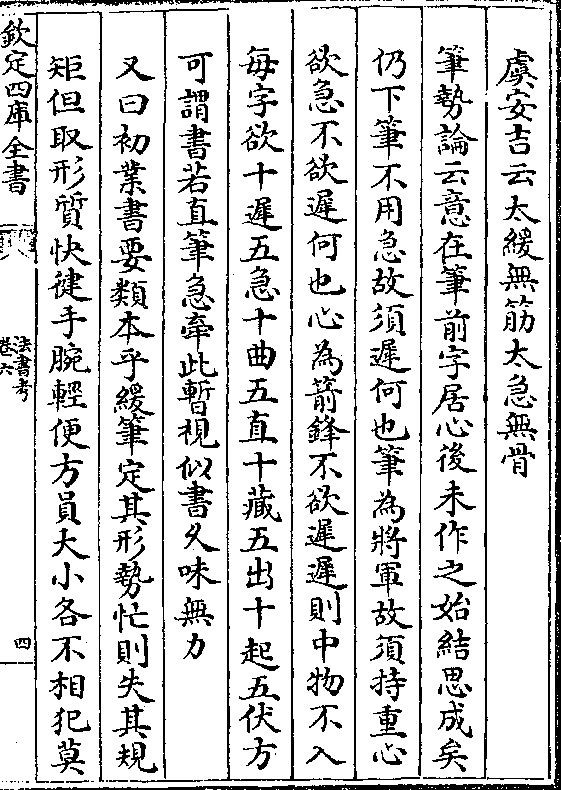 虞安吉云太緩無筋太急無骨
筆勢論云意在筆前字居心後未作之始結思成矣
仍下筆不用急故須遲何也筆為將軍故須持重心
欲急不欲遲何也心為箭鋒不欲遲遲則中物不入
每字欲十遲五急十曲五直十藏五出十起五伏方
可謂書若直筆急牽此暫視似書久味無力
又曰初業書要類本乎緩筆定其形勢忙則失其規
矩但取形質快健手腕輕便方員大小各不相犯莫
欽定四庫全書
法書考
卷六
四